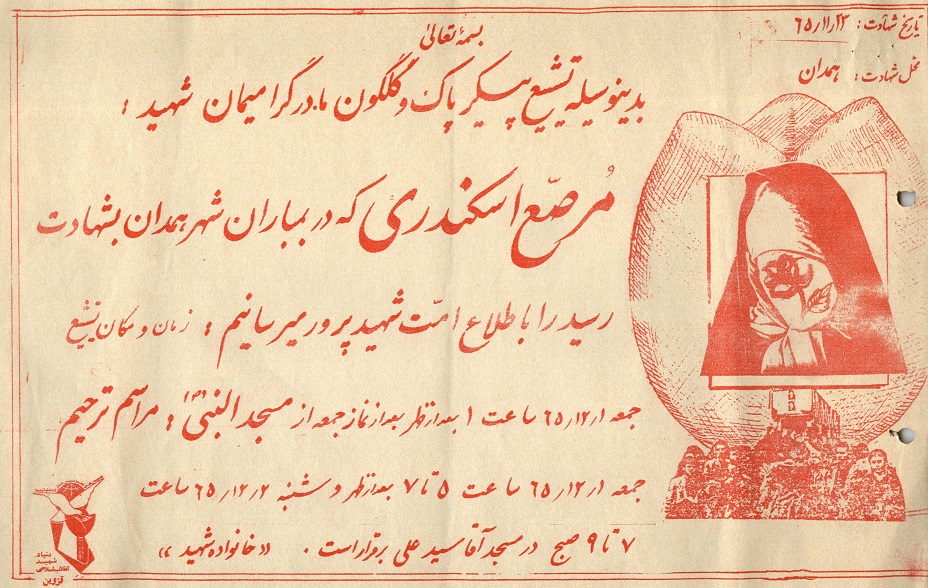 تاریخ شهادت: ۶۵/۱۱/۲۲
محل شهادت: همدان
بسمه تعالی
بدینوسیله تشییع پیکر پاک و گلگون مادر گرامیمان شهید:
مُرصّع اسکندری که در بمباران شهر همدان بشهادت
رسید را باطلاع امّت شهیدپرور میرسانیم: زمان و مکان تشییع
جمعه ۶۵/۱۲/۱ ساعت ۱ بعدازظهر بعد از نماز جمعه از مسجد النبی (ص)؛ مراسم ترحیم
جمعه ۶۵/۱۲/۱ ساعت ۵ تا ۷ بعدازظهر و شنبه ۶۵/۱۲/۲ ساعت
۷ تا ۹ صبح در مسجد آقا سید علی برقرار است. «خانواده شهید»
بنیاد
شهید
انقلاب اسلامی
قزوین